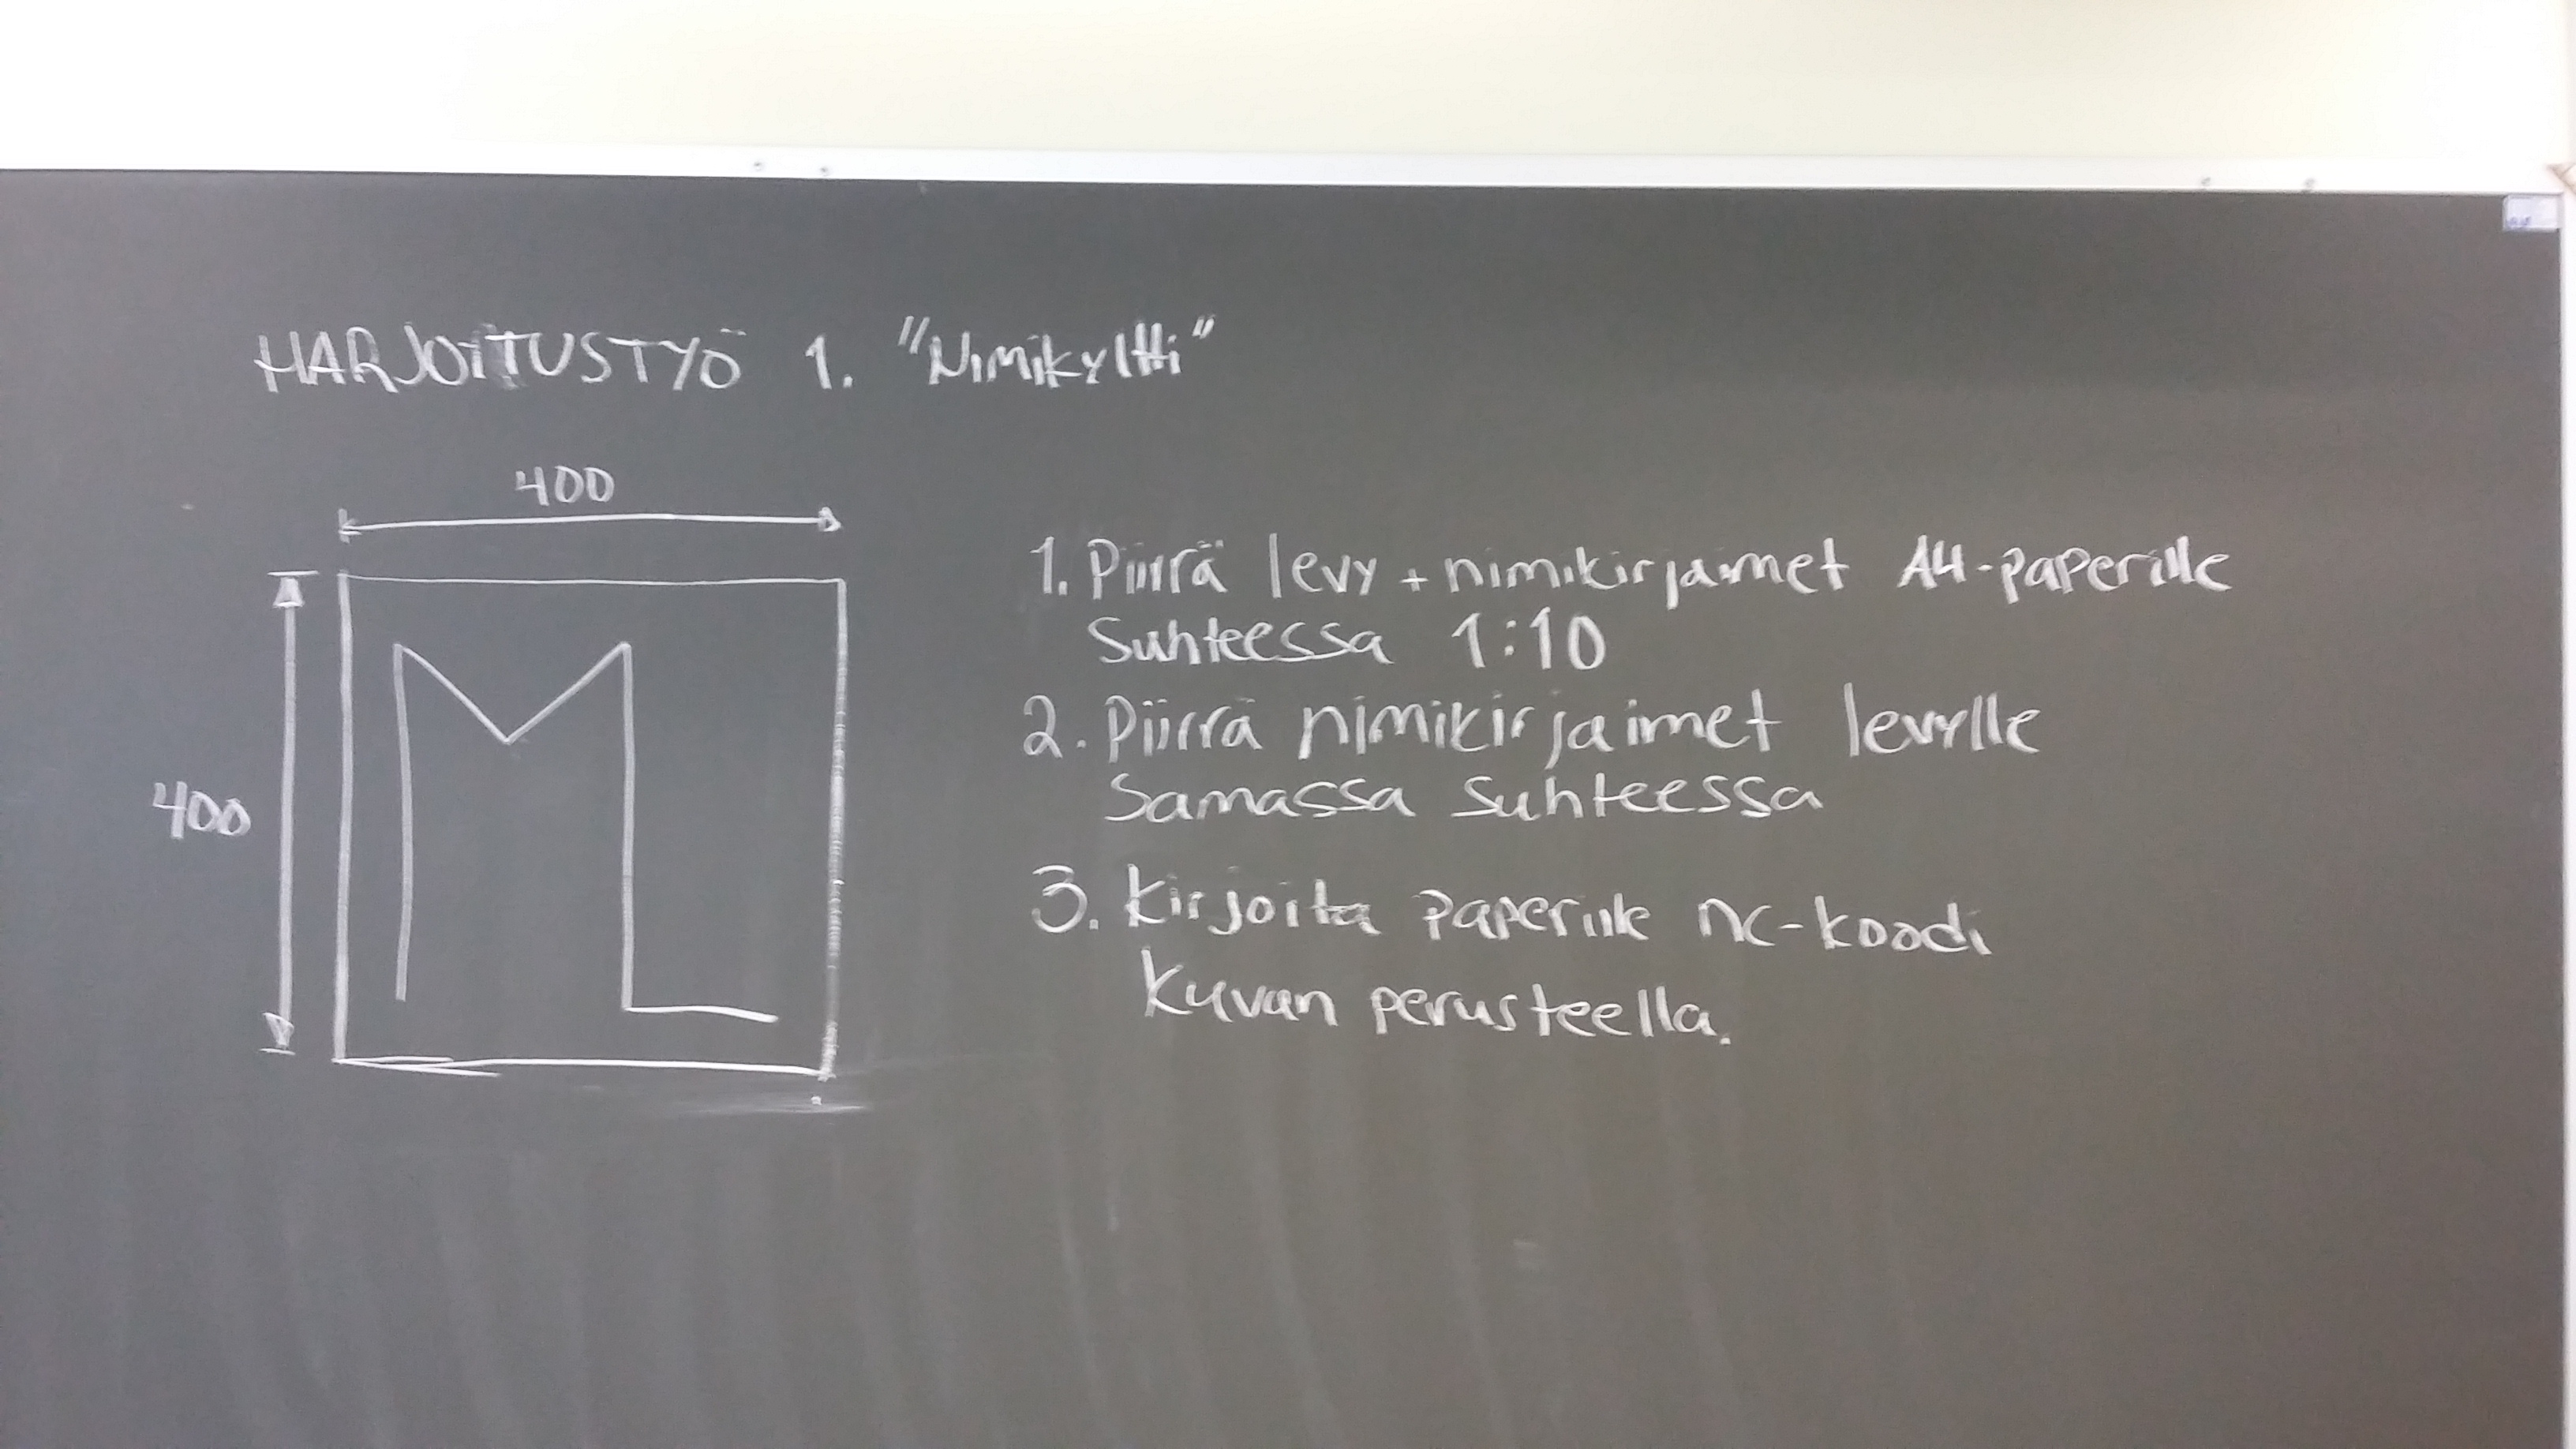 HARJOITUSTYÖ 1. "Nimikyltti"
400
400
1. Piirrä levy + nimikirjaimet A4-paperille
Suhteessa 1:10
2. Piirrä nimikirjaimet levylle
Samassa Suhteessa
3. Kirjoita paperille nc-koodi
Kuvan perusteella.